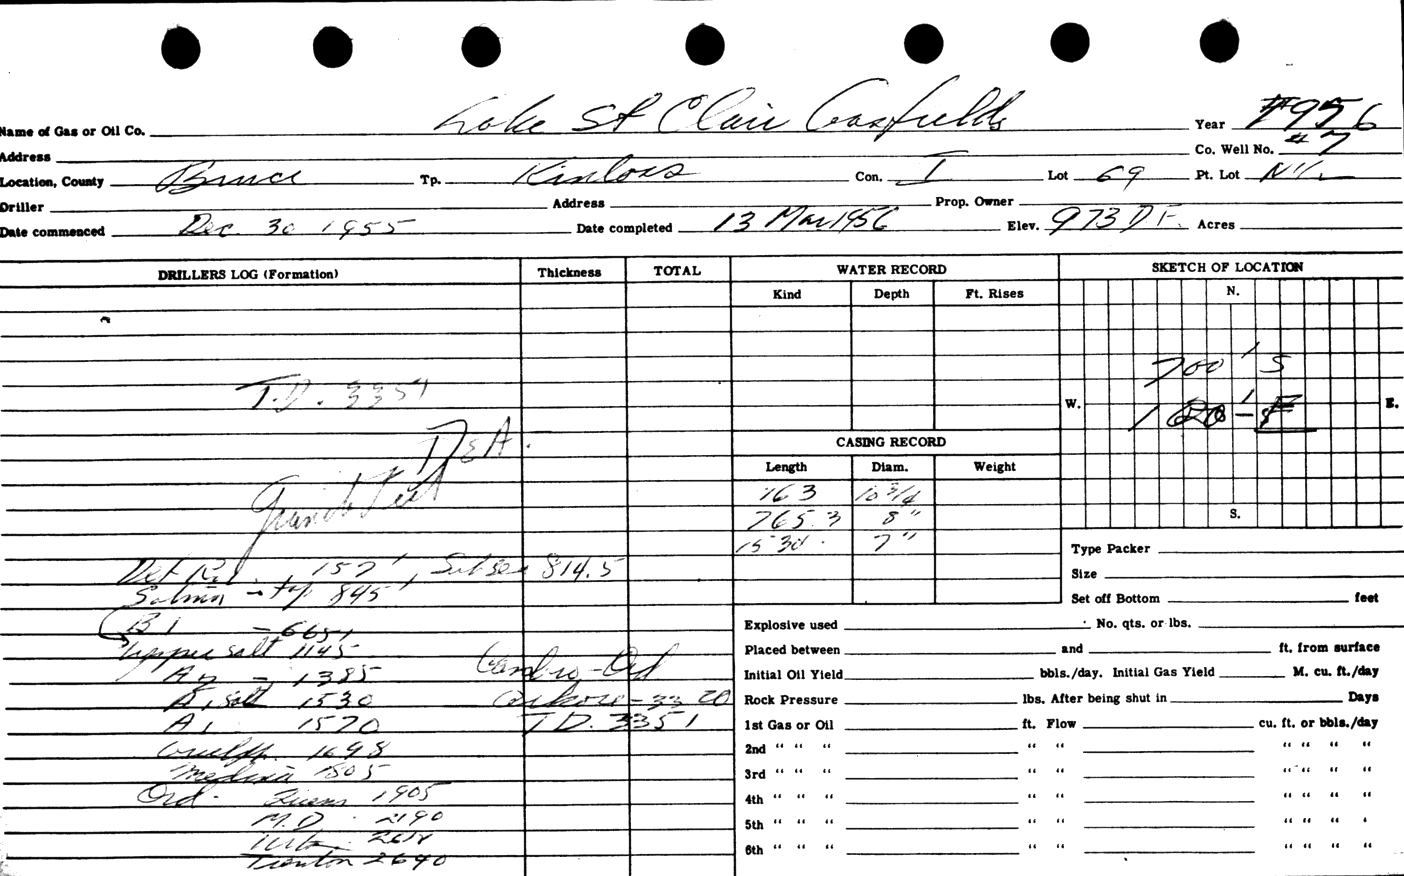 Name of Gas or Oil Co. Lake St Clair Gasfields Year 1956
Address Co. Well No. #7
Location, County Bruce Tp. Kinloss Con. I Lot 69 Pt. Lot N½
Driller Address Prop. Owner
Date commenced Dec. 30 1955 Date completed 13 Mar 1956 Elev. 973 D F. Acres
DRILLERS LOG (Formation) Thickness TOTAL WATER RECORD SKETCH OF LOCATION
Kind Depth Ft. Rises N.
700' S
T.D. 3351
W. E.
D & A.
CASING RECORD
Length Diam. Weight
763 10 3/4
765.3 8"
S.
1530 7"
Type Packer
Det Riv. 157', Subsea 814.5
Size
Salina - top 845'
Set off Bottom feet
B1 - 665'
Explosive used No. qts. or lbs.
upper salt 1145
Placed between and ft. from surface
A2 - 1385 Cambro-Ord
Initial Oil Yield bbls./day. Initial Gas Yield M. cu. ft./day
A1 salt 1530 3320
Rock Pressure lbs. After being shut in Days
A1 1570 T.D. 3351
1st Gas or Oil ft. Flow cu. ft. or bbls./day
Guelph 1698
2nd " " " " " " " " "
Medina 1805
3rd " " " " " " " " "
Ord. Queens 1905
4th " " " " " " " " "
M.D. 2190
5th " " " " " " " " "
Utica 2618
6th " " " " " " " " "
Trenton 2640